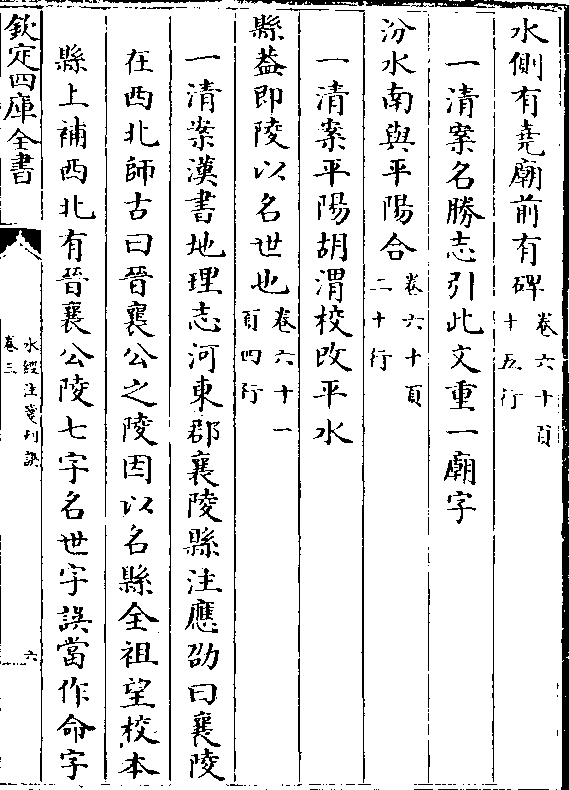 水側有堯廟前有碑卷六十頁十五行
一清案名勝志引此文重一廟字
汾水南與平陽合卷六十頁二十行
一清案平陽胡渭校改平水
縣葢即陵以名世也卷六十一頁四行
一清案漢書地理志河東郡襄陵縣注應劭曰襄陵
在西北師古曰晉襄公之陵因以名縣全祖望校本
縣上補西北有晉襄公陵七字名世字誤當作命字
欽定四庫全書
水經注箋刊誤
卷三
六